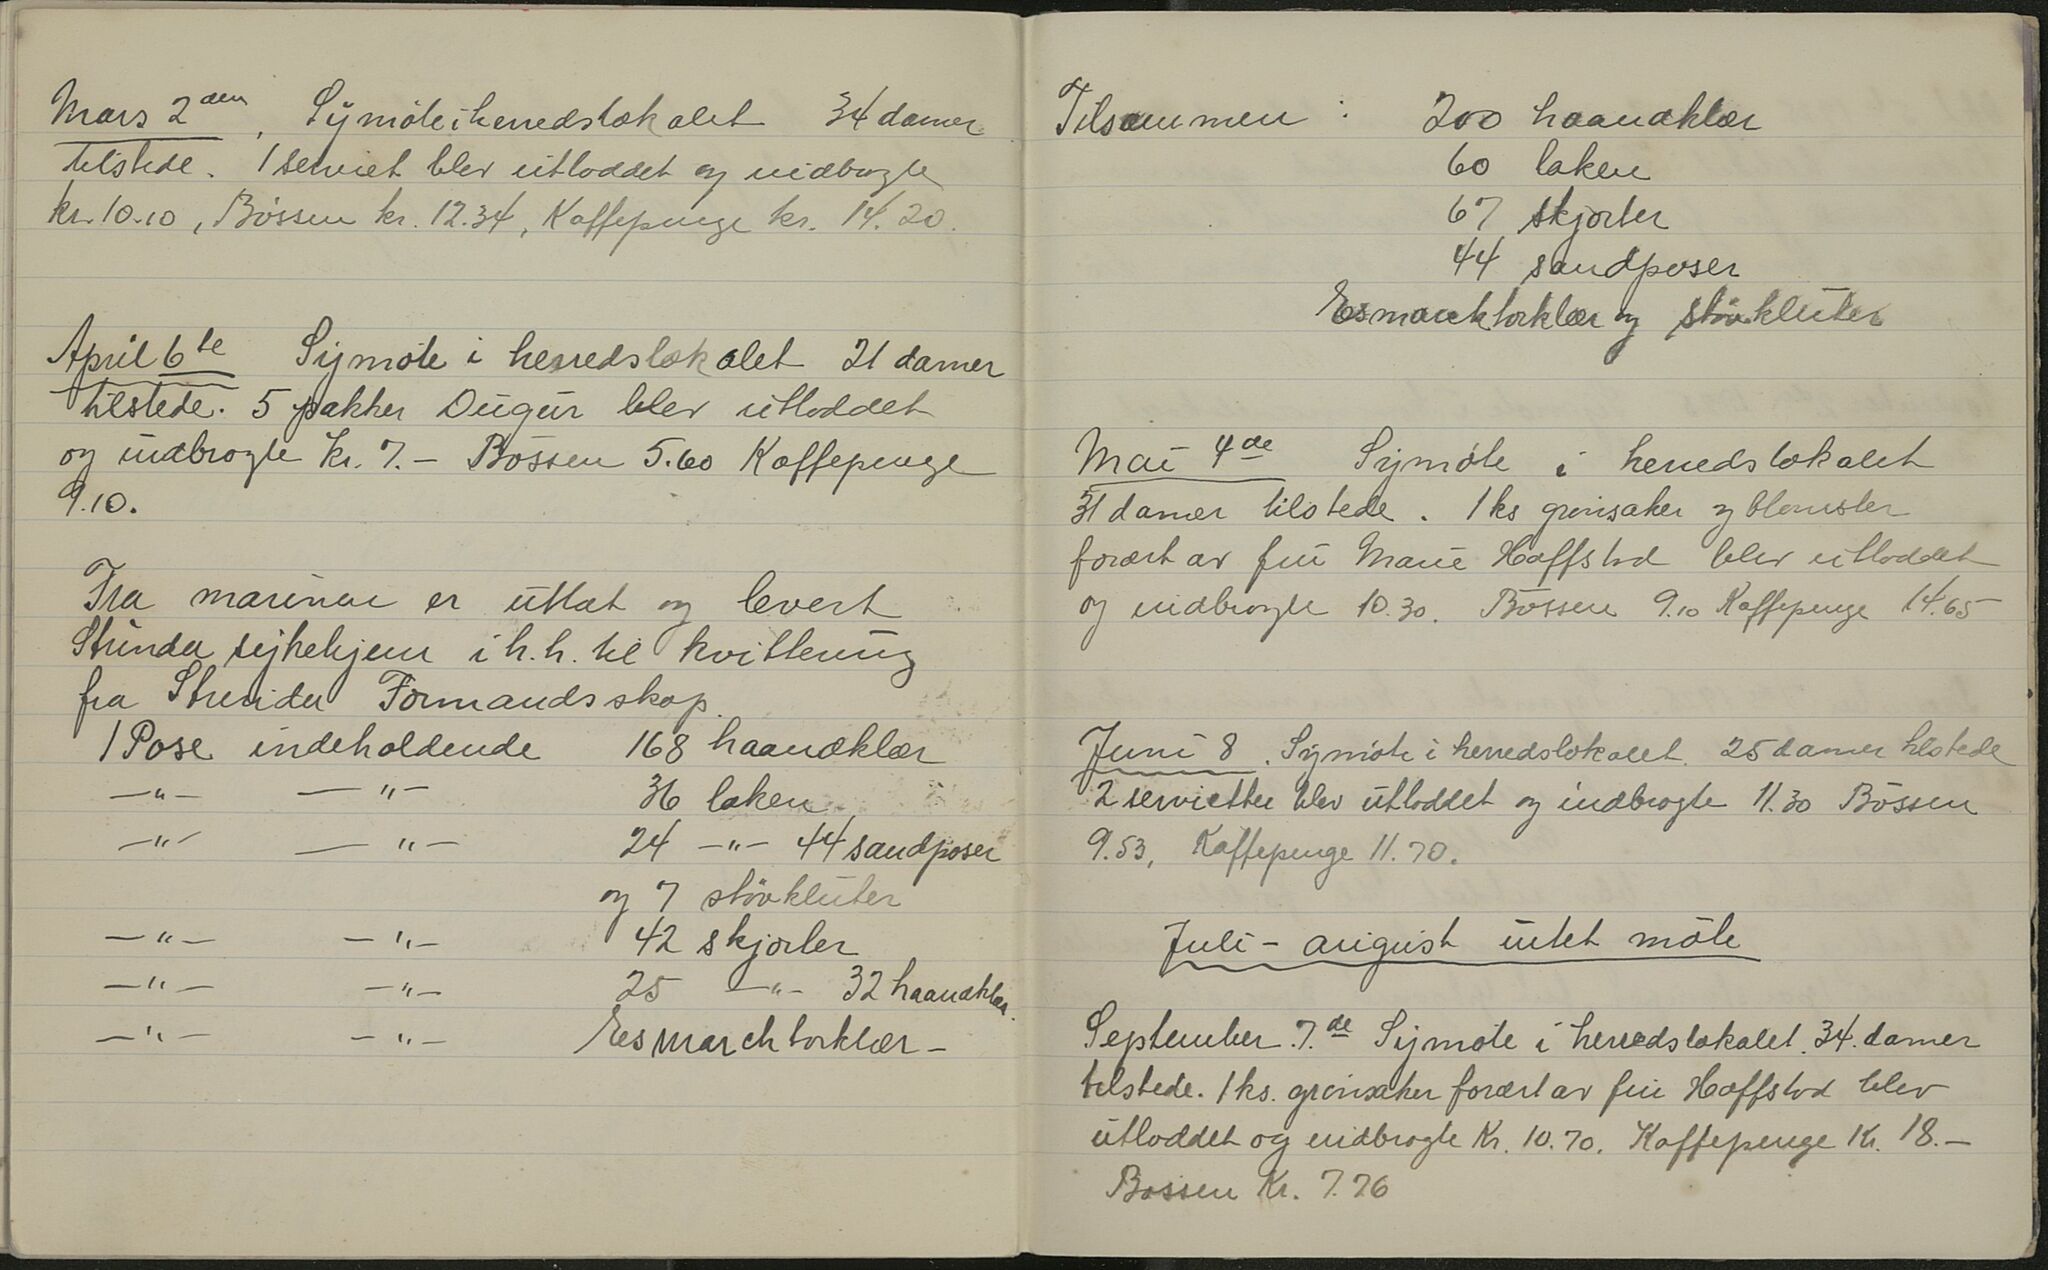 Mars 2den, Symöte i herredslokalet 34 damer
tilstede. 1 serviet blev utloddet og indbragte
kr. 10.10, Bössen kr. 12.34, Kaffepenge kr. 14.20.
April 6te Symöte i herredslokalet 21 damer
tilstede. 5 pakker Dugur blev utloddet
og indbragte kr. 7.- Bössen 5.60 Kaffepenge
9.10.
Fra marinen er utlat og levert
Strinda sykehjem i h.h. til kvittering
fra Strinda Formandsskap.
1 Pose indeholdende 168 haandklær
—"— —"— 36 laken
—"— —"— 24 —"— 44 sandposer
og 7 stövkluter
—"— —"— 42 skjorter
—"— —"— 25 —"— 32 haandklær.
—"— —"— Esmarchtorklær —
Tilsammen : 200 haandklær
60 laken
67 skjorter
44 sandposer
Esmarcktorklær og stövkluter
Mai 4de Symöte i herredslokalet
31 damer tilstede. 1 ks grönsaker og blomster
forært av frú Marie Hoffstad blev utloddet
og indbragte 10.30. Bössen 9.10 Kaffepenge 14.65
Juni 8. Symöte i herredslokalet. 25 damer tilstede
2 servietter blev utloddet og indbragte 11.30 Bössen
9.53, Kaffepenge 11.70.
Juli - august intet möte
September 7.de Symöte i herredslokalet. 34 damer
tilstede. 1 ks. grönsaker forært av frú Hoffstad blev
utloddet og indbragte Kr. 10.70. Kaffepenge Kr. 18.-
Bössen Kr. 7.76